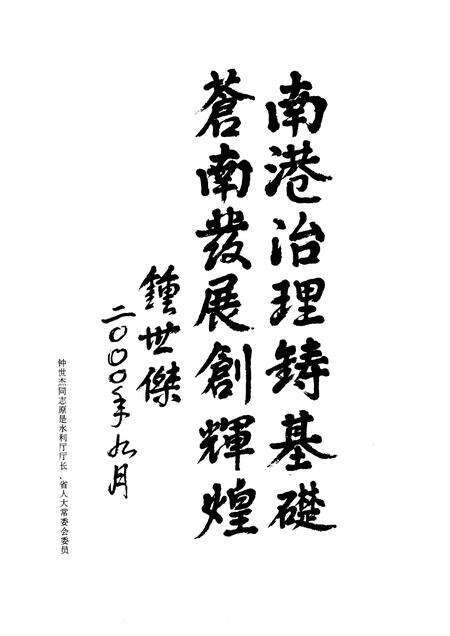 南港治理鑄基礎
蒼南發展創輝煌
鍾世傑
二〇〇〇年九月
钟世杰同志原是水利厅厅长、省人大常委会委员